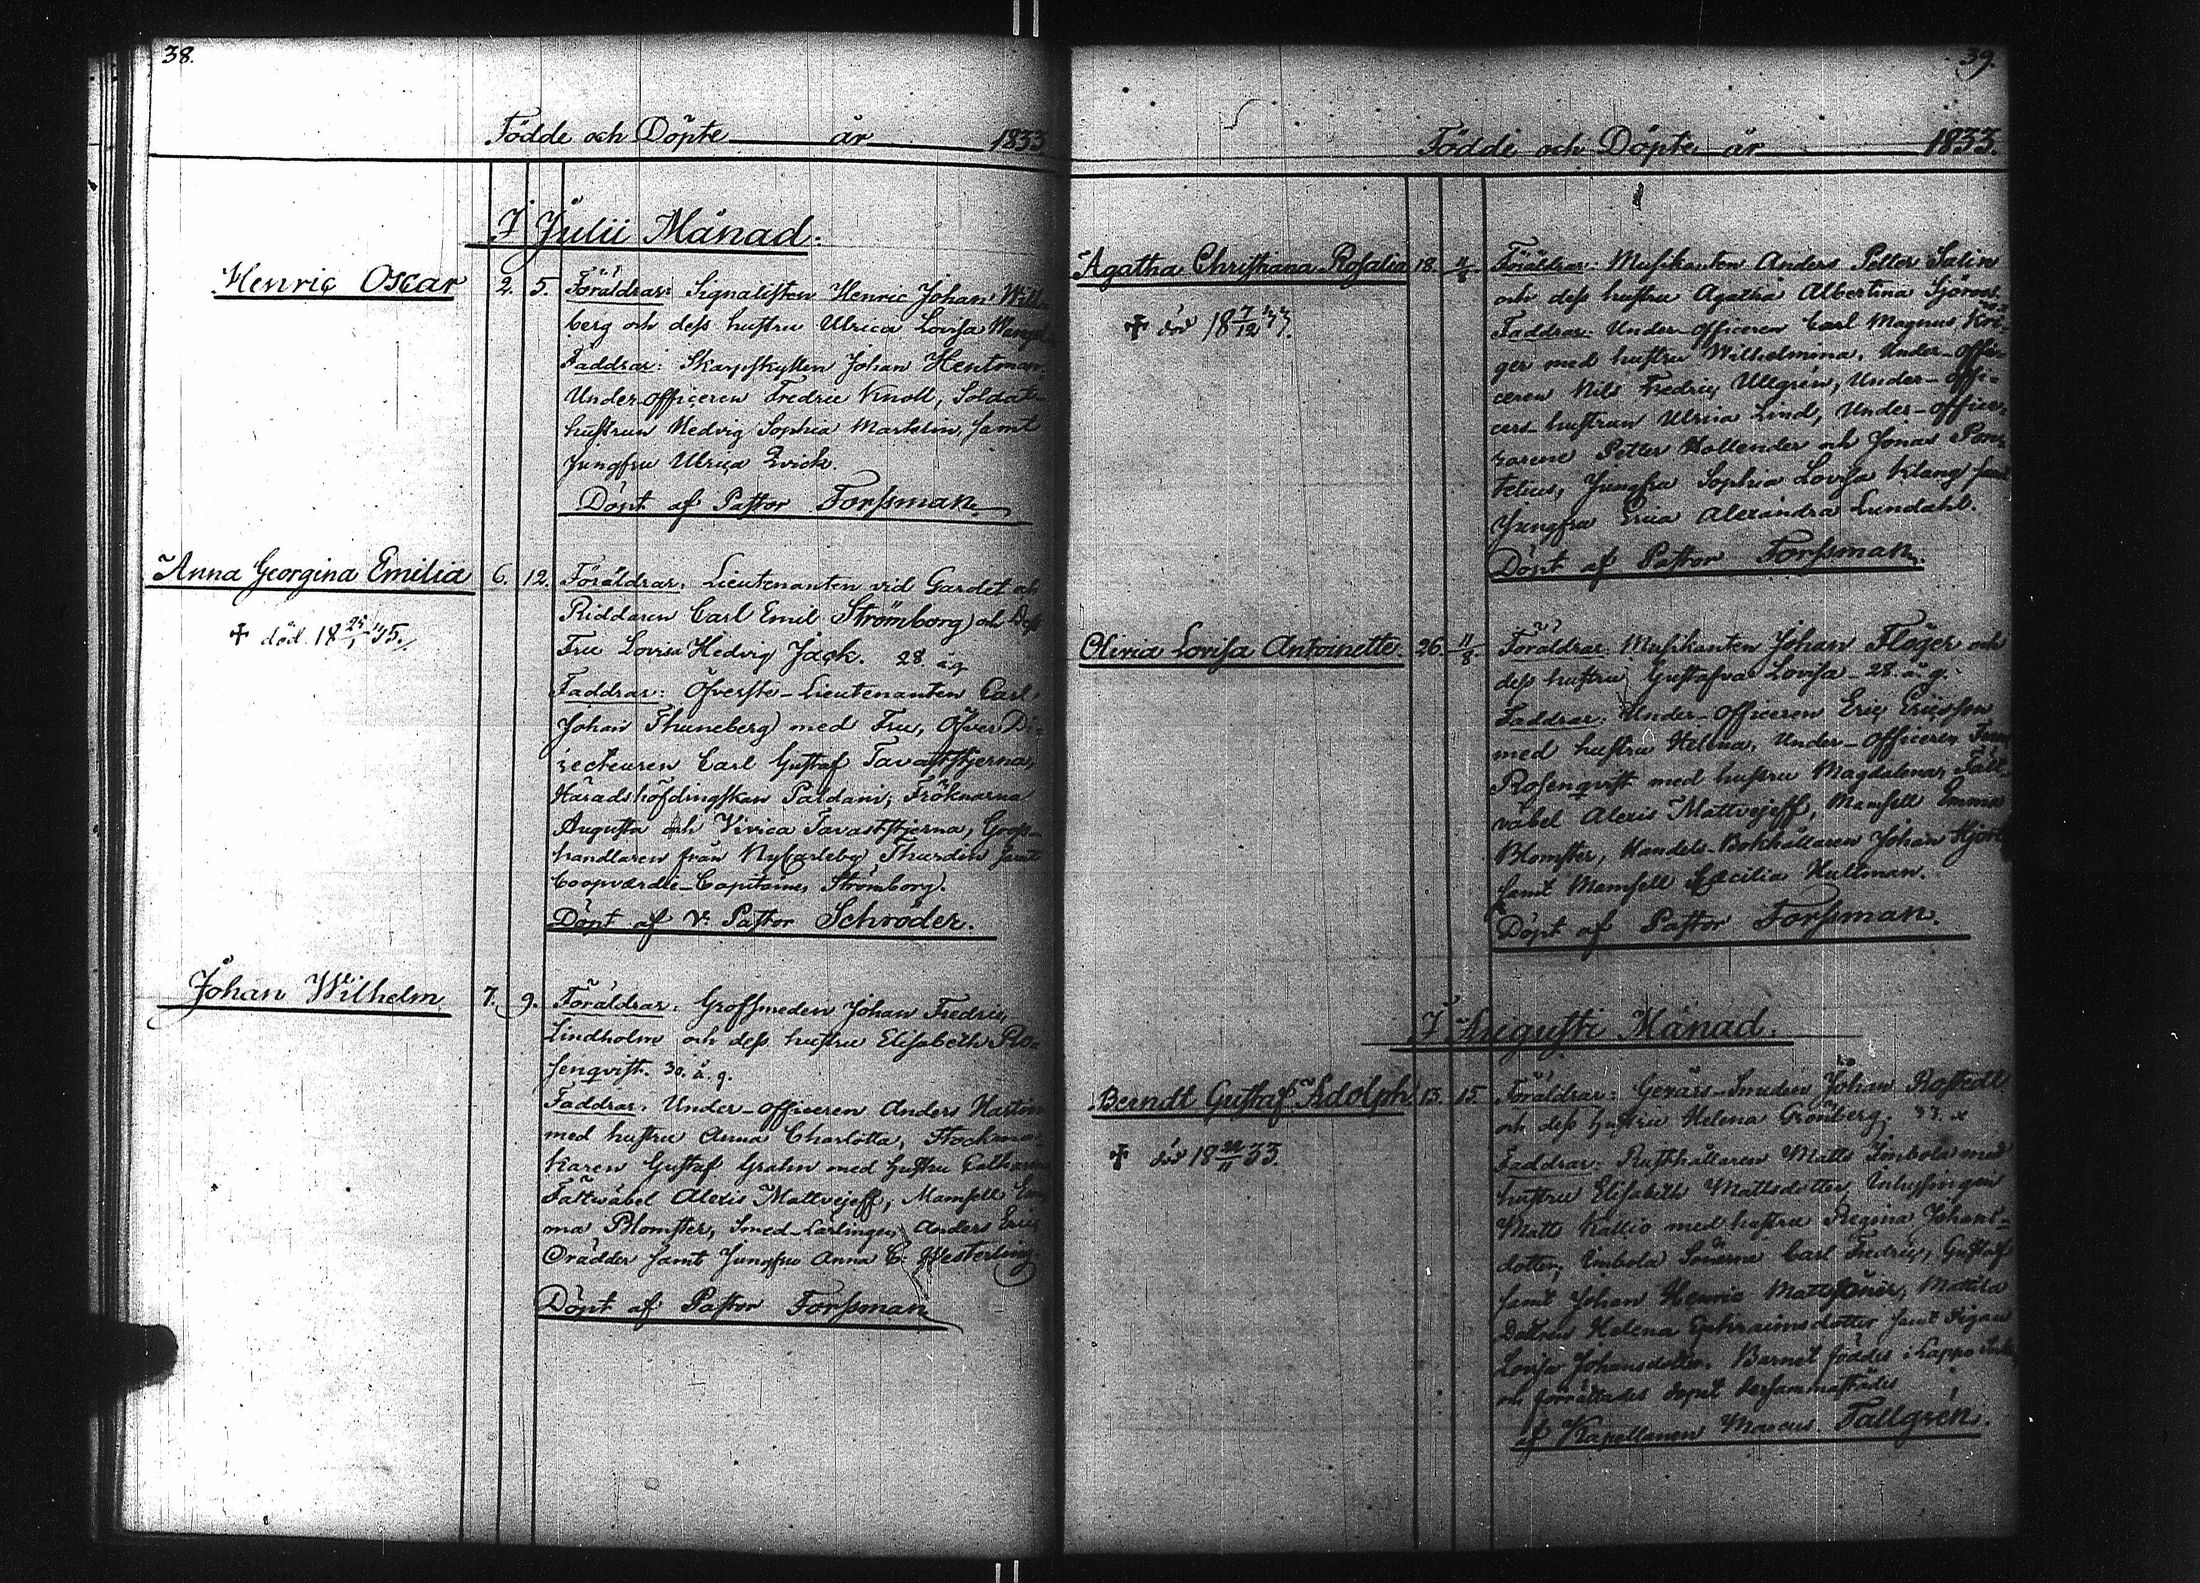 38.
Födde och Döpte år 1833
I Julii Månad.
Henric Oscar 2. 5. Föräldrar: Signalisten Henric Johan
berg och dess hustru Ulrica Lovisa
Faddrar: Skarpskytten Johan Hentman
Under-officeren Fredric Knoll, Soldat-
hustrun Hedvig Sophia Marklin, samt
Jungfru Ulrica Qvick.
Döpt af Pastor Forssman
Anna Georgina Emilia 6. 12. Föräldrar: Lieutenanten vid Gardet och
Riddaren Carl Emil Strömborg och Dess
✝ död 18 /1 35.
Fru Lovisa Hedvig Jack. 28 åg
Faddrar: Öfverste-Lieutenanten Carl
Johan Thuneberg med Fru, Öfver Di-
recteuren Carl Gustaf Tavaststjerna,
Häradshöfdingskan Paldani, Fröknarna
Augusta och Vivica Tavaststjerna, Gross-
handlaren från NyCarleby Thurdin samt
Coopværdie-Capitaine Strömborg.
Döpt af V. Pastor Schröder.
Johan Wilhelm 7. 9. Föräldrar: Grofsmeden Johan Fredric
Lindholm och dess hustru Elisabeth Ro-
senqvist. 30. å. g.
Faddrar: Under-officeren Anders Hastin
med hustru Anna Charlotta, Stockma-
karen Gustaf Grahn med hustru Catharina
Fältväbel Alexis Mattvejeff, Mamsell Em
ma Blomster, Smed-Lärlingen Anders Eric
Orädder samt Jungfru Anna C. Westerling
Döpt af Pastor Forssman
39.
Födde och Döpte år 1833.
Agatha Christiana Rosalia 18. 4/8 Föräldrar: Musikanten Anders Petter Salin
och dess hustru Agatha Albertina
✝ död 18 7/12 33.
Faddrar: Under-officeren Carl Magnus Krü-
ger med hustru Wilhelmina, Under-offi-
ceren Nils Fredric Ullgrén, Under-offi-
cers-hustrun Ulrica Lind, Under-office-
rarene Petter Hollender och Jonas Pom-
telius, Jungfru Sophia Lovisa Klang samt
Jungfru Erica Alexandra Lundahl.
Döpt af Pastor Forssman.
Olivia Lovisa Antoinette. 26. 11/8 Föräldrar: Musikanten Johan Fläger och
dess hustru Gustafva Lovisa 28. å. g.
Faddrar: Under-officeren Eric Ericsson
med hustru Helena, Under-officeren
Rosenqvist med hustru Magdalena, Fält-
väbel Alexis Mattvejeff, Mamsell Emma
Blomster, Handels-Bokhållaren Johan Hjort
samt Mamsell Cæcilia Hultman.
Döpt af Pastor Forssman.
I Augusti Månad.
Berndt Gustaf Adolph 13. 15. Föräldrar: Gevärs-Smeden Johan
och dess hustru Helena Grönberg. 33.
✝ död 18 22/11 33.
Faddrar: Rusthållaren Matts Imbola med
hustru Elisabeth Mattsdotter, Inhysingen
Matts Kallio med hustru Regina Johans-
dotter, Imbola Sönerne Carl Fredric, Gustaf
samt Johan Henric Mattssöner,
Helena Ephraimsdotter samt Pigan
Lovisa Johansdotter. Barnet föddes i Lappo
och förrättades dopet dersammastädes
af Kapellanen Marcus Tallgrén.